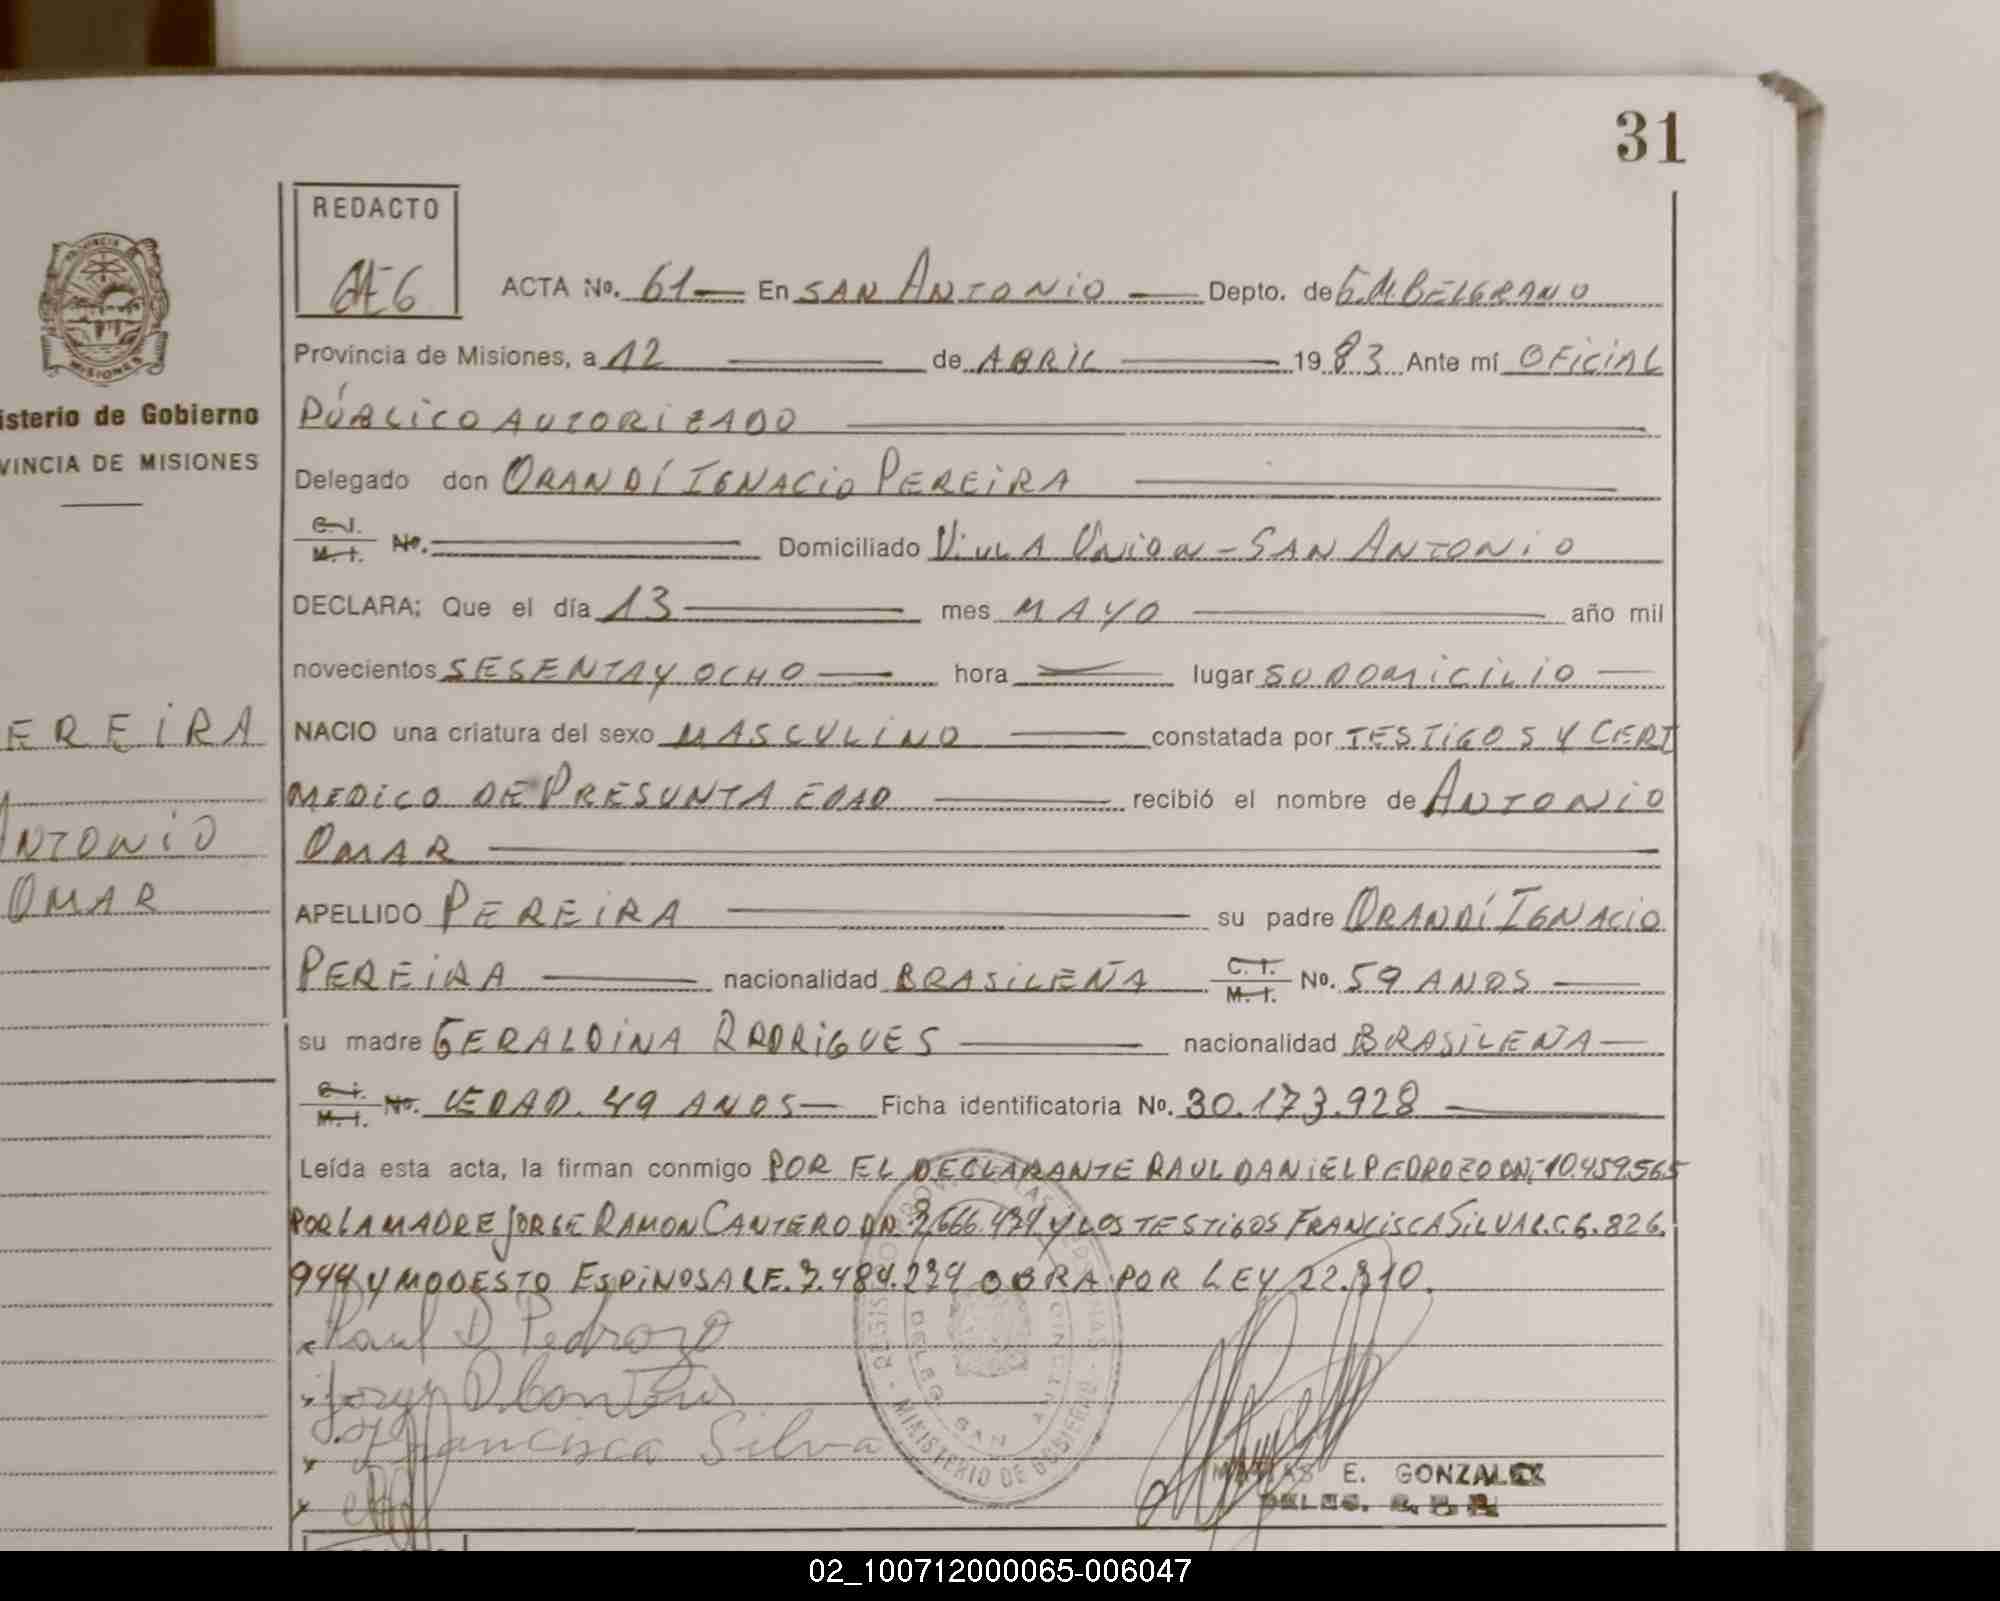 31
REDACTO
ACTA No. 61 En SAN ANTONIO Depto. de G.M.BELGRANO
Provincia de Misiones, a 12 de ABRIL 1983 Ante mí OFICIAL
PÚBLICO AUTORIZADO
Delegado don ORANDÍ IGNACIO PEREIRA
C.I. M.I. No. Domiciliado VILLA UNION - SAN ANTONIO
DECLARA; Que el día 13 mes MAYO año mil
novecientos SESENTA Y OCHO hora lugar SU DOMICILIO
NACIO una criatura del sexo MASCULINO constatada por TESTIGOS Y CERT
MEDICO DE PRESUNTA EDAD recibió el nombre de ANTONIO
OMAR
APELLIDO PEREIRA su padre ORANDÍ IGNACIO
PEREIRA nacionalidad BRASILEÑA C.I. M.I. No. 59 ANOS
su madre GERALDINA RRDRIGUES nacionalidad BRASILEÑA
C.I. M.I. No. EDAD. 49 ANOS Ficha identificatoria No. 30.173.928
Leída esta acta, la firman conmigo POR EL DECLARANTE RAUL DANIEL PEDROZO DNI 10.459565
POR LA MADRE JORGE RAMON CANTERO Y LOS TESTIGOS FRANCISCA SILVA L.C. 6.826.
944 Y MODESTO ESPINOSA LE. 7.484.234 OBRA POR LEY 22.810.
Raul D Pedrozo
Francisca Silva
MINISTERIO DE GOBIERNO
DELEG. SAN ANTONIO
MATIAS E. GONZALEZ
DELEG.
PROVINCIA
MISIONES
isterio de Gobierno
VINCIA DE MISIONES
EREIRA
ANTONIO
OMAR
02_100712000065-006047